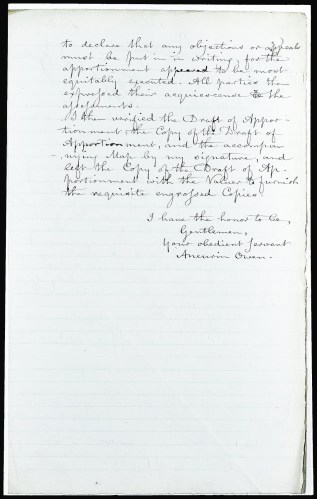 to declare that any objections or appeals
must be put in in writing, for the
apportionment appeared to be most
equitably executed. All parties then
expressed their acquiescence to the
assessments.
I then verified the Draft of Appor-
-tionment, the Copy of the Draft of
Apportionment, and the accompa-
-nying Map by my signature, and
left the Copy of the Draft of Ap-
portionment with the Valuer to furnish
the requisite engrossed Copies.
I have the honor to be,
Gentlemen,
Your obedient Servant
Aneurin Owen.